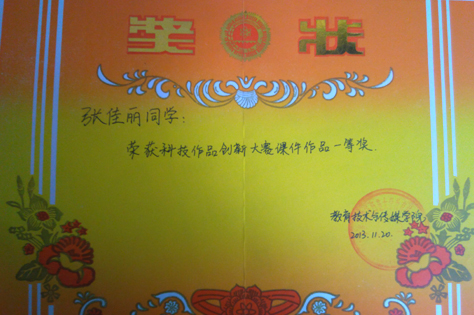 奖状
张佳丽同学：
荣获科技作品创新大赛课件作品一等奖.
教育技术与传媒学院
2013.11.20.